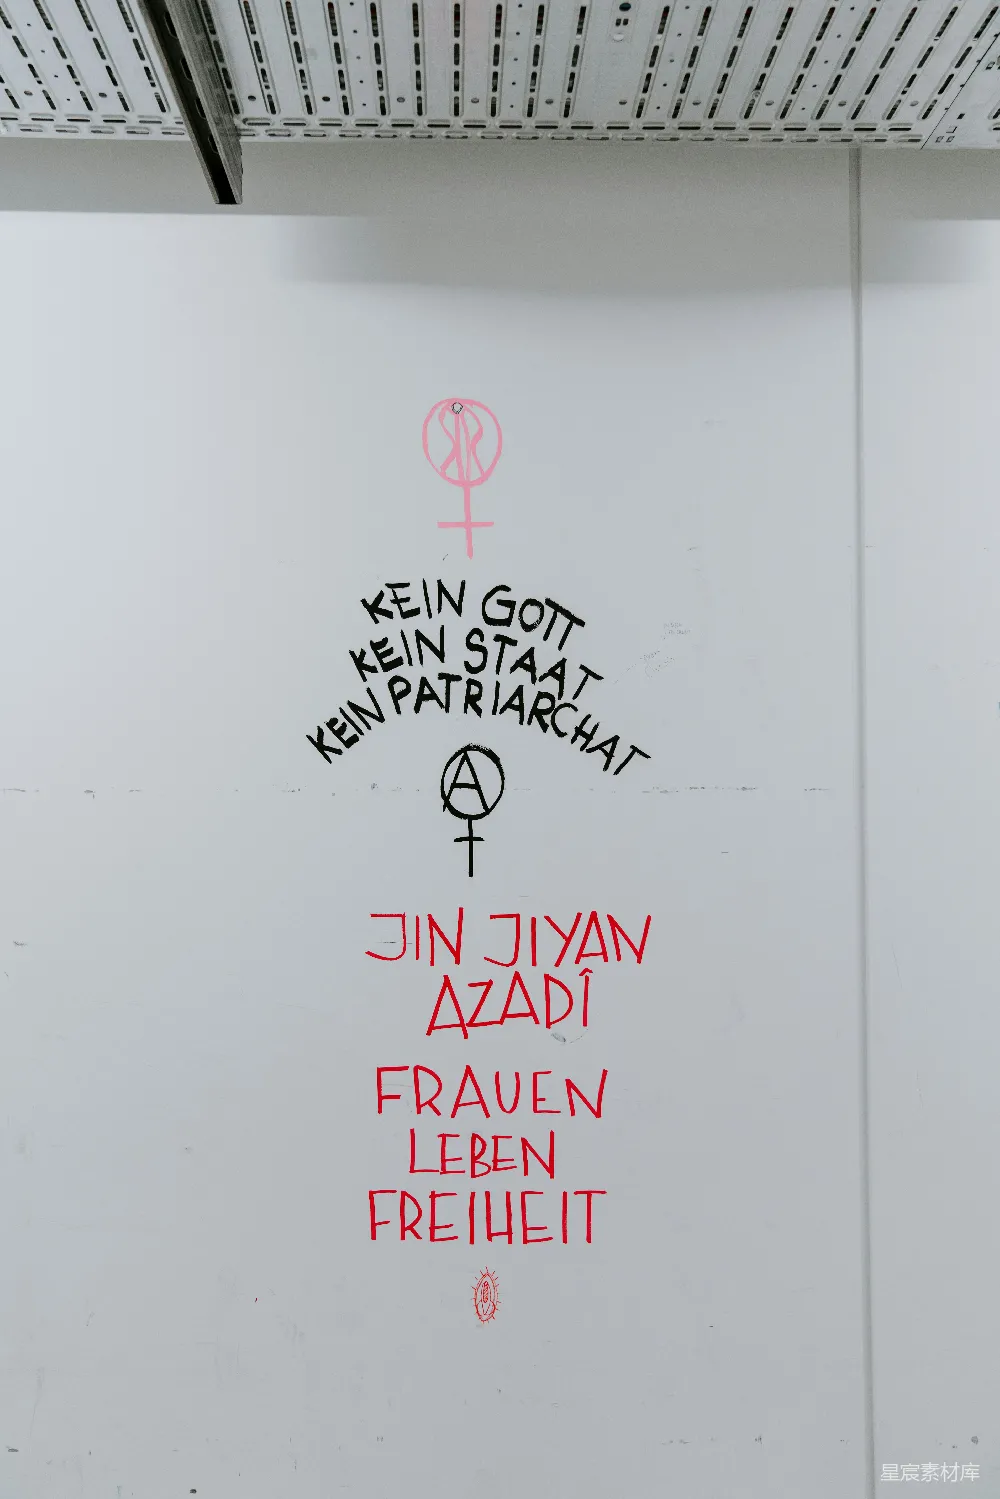 KEIN GOTT
KEIN STAAT
KEIN PATRIARCHAT
A
JIN JIYAN
AZADÎ
FRAUEN
LEBEN
FREIHEIT
星宸素材库